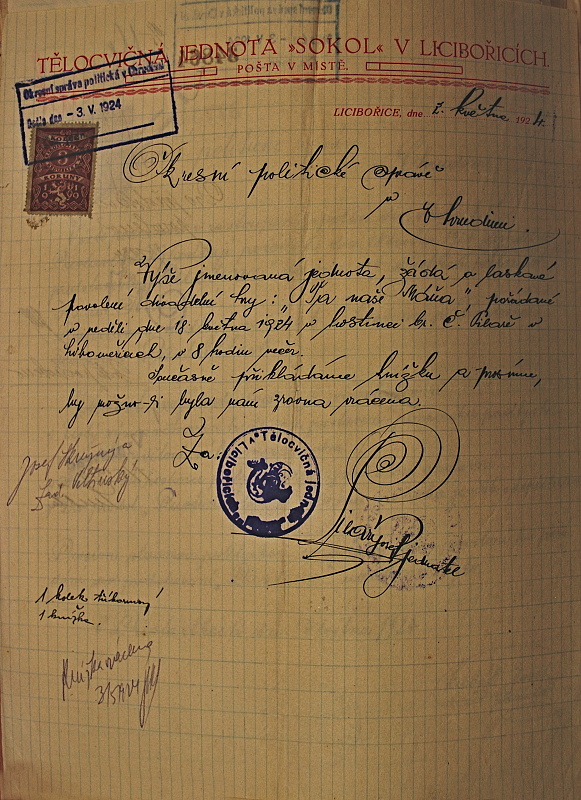 TĚLOCVIČNÁ JEDNOTA »SOKOL« V LICIBOŘICÍCH.
POŠTA V MÍSTĚ.
Okresní správa politická v Chrudimi
Došlo dne - 3. V. 1924
LICIBOŘICE, dne 2. května 1924.
Okresní politické správě
v
Chrudimi.
Výše jmenovaná jednota, žádá o laskavé
povolení divadelní hry: "Ta naše Máňa", pořádané
v neděli dne 18. května 1924 v hostinci br. Č. v
, v 8 hodin večer.
Současně přikládáme knížku a prosíme,
by možno-li byla nám zrovna vrácena.
Za:
Tělocvičná jednota
v Licibořicích
jednatel
Josef
1 kolek tříkorunový
1 knížka.
Knížka vrácena